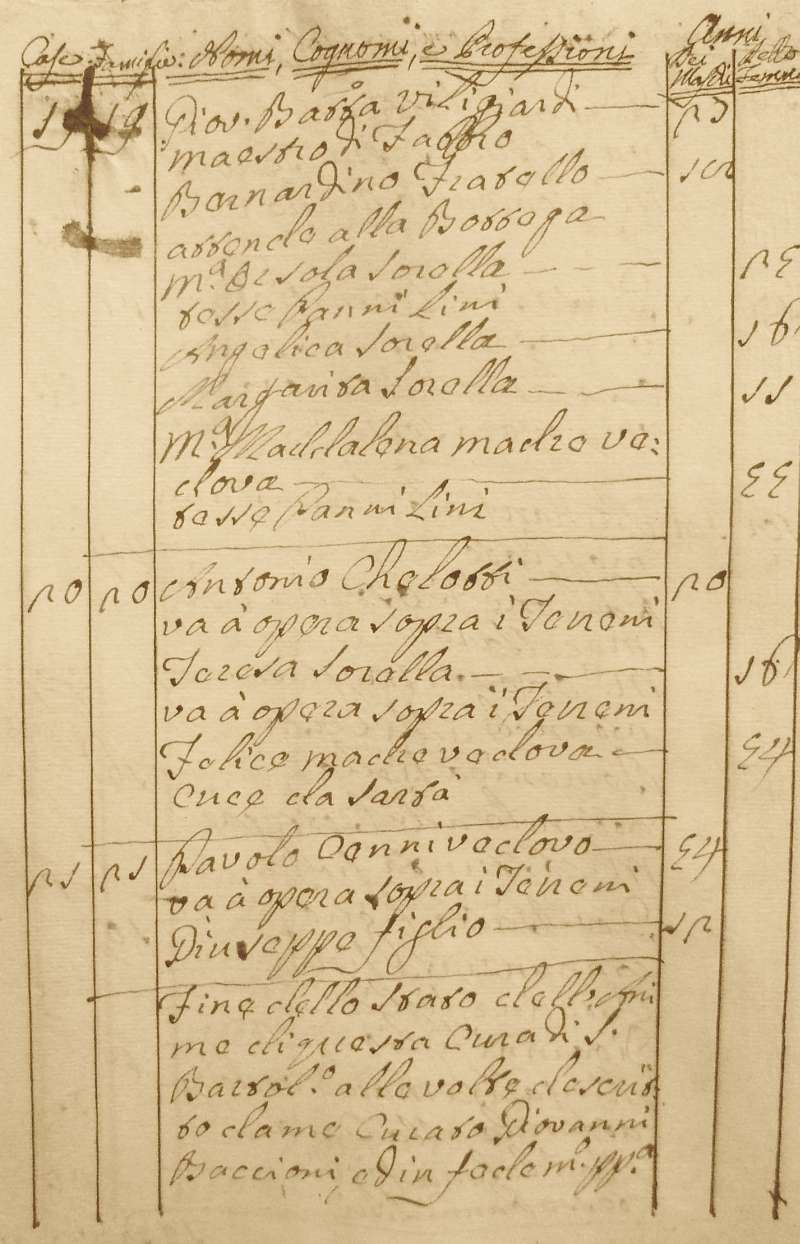 Case Famiglie: Nomi, Cognomi, e Professioni Anni
Dei Maschi delle femmine
19 19 Giov. Batta Viligiardi 23
maestro di Fabbro
Bernardino Fratello
attende alla Bottega
M.a Orsola Sorella 25
tesse Panni Lini
Angelica Sorella 16
Margarita Sorella 11
M.a Maddalena madre ve:
dova 55
tesse Panni Lini
20 20 Antonio Chelotti 20
va à opera sopra i Terreni
Teresa Sorella 16
va à opera sopra i Terreni
Felice madre vedova 54
Cuce da Sartà
21 21 Pavolo Cenni vedovo 54
va à opera sopra i Terreni
Giuseppe figlio 12
Fine dello Stato dell'Ani
me di questa Cura di S.
Bartol.o alle volte descrit
to da me Curato Giovanni
Baccioni, ed in fede m.o pp.a